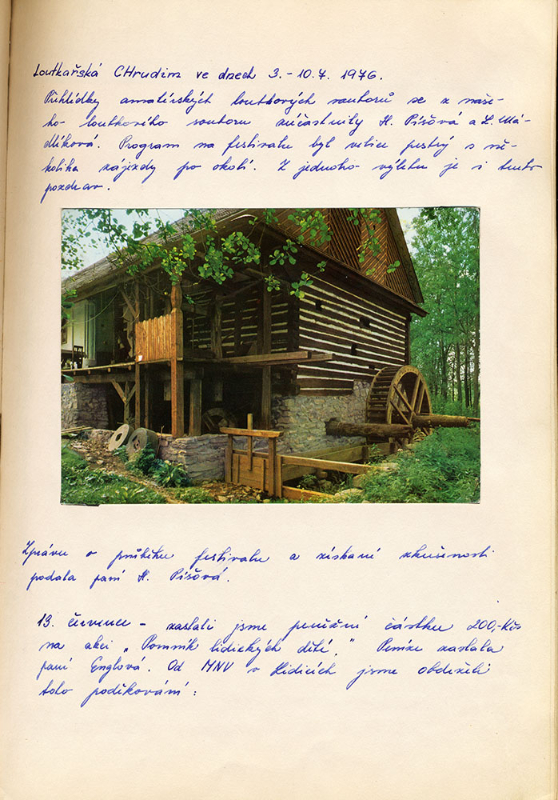 Loutkářská CHrudim ve dnech 3.-10.7. 1976.
Přehlídky amatérských loutkových souborů se z naše-
ho loutkového souboru zúčastnily H. Píšová a L. Má-
dlíková. Program na festivalu byl velice pestrý s ně-
kolika zájezdy po okolí. Z jednoho výletu je i tento
pozdrav.
Zprávu o průběhu festivalu a získaní zkušenosti
podala paní H. Píšová.
13. července - zaslali jsme peněžní částku 200,-Kčs
na akci „Pomník lidických dětí." Peníze zaslala
paní Englová. Od MNV v Lidicích jsme obdrželi
toto poděkování: